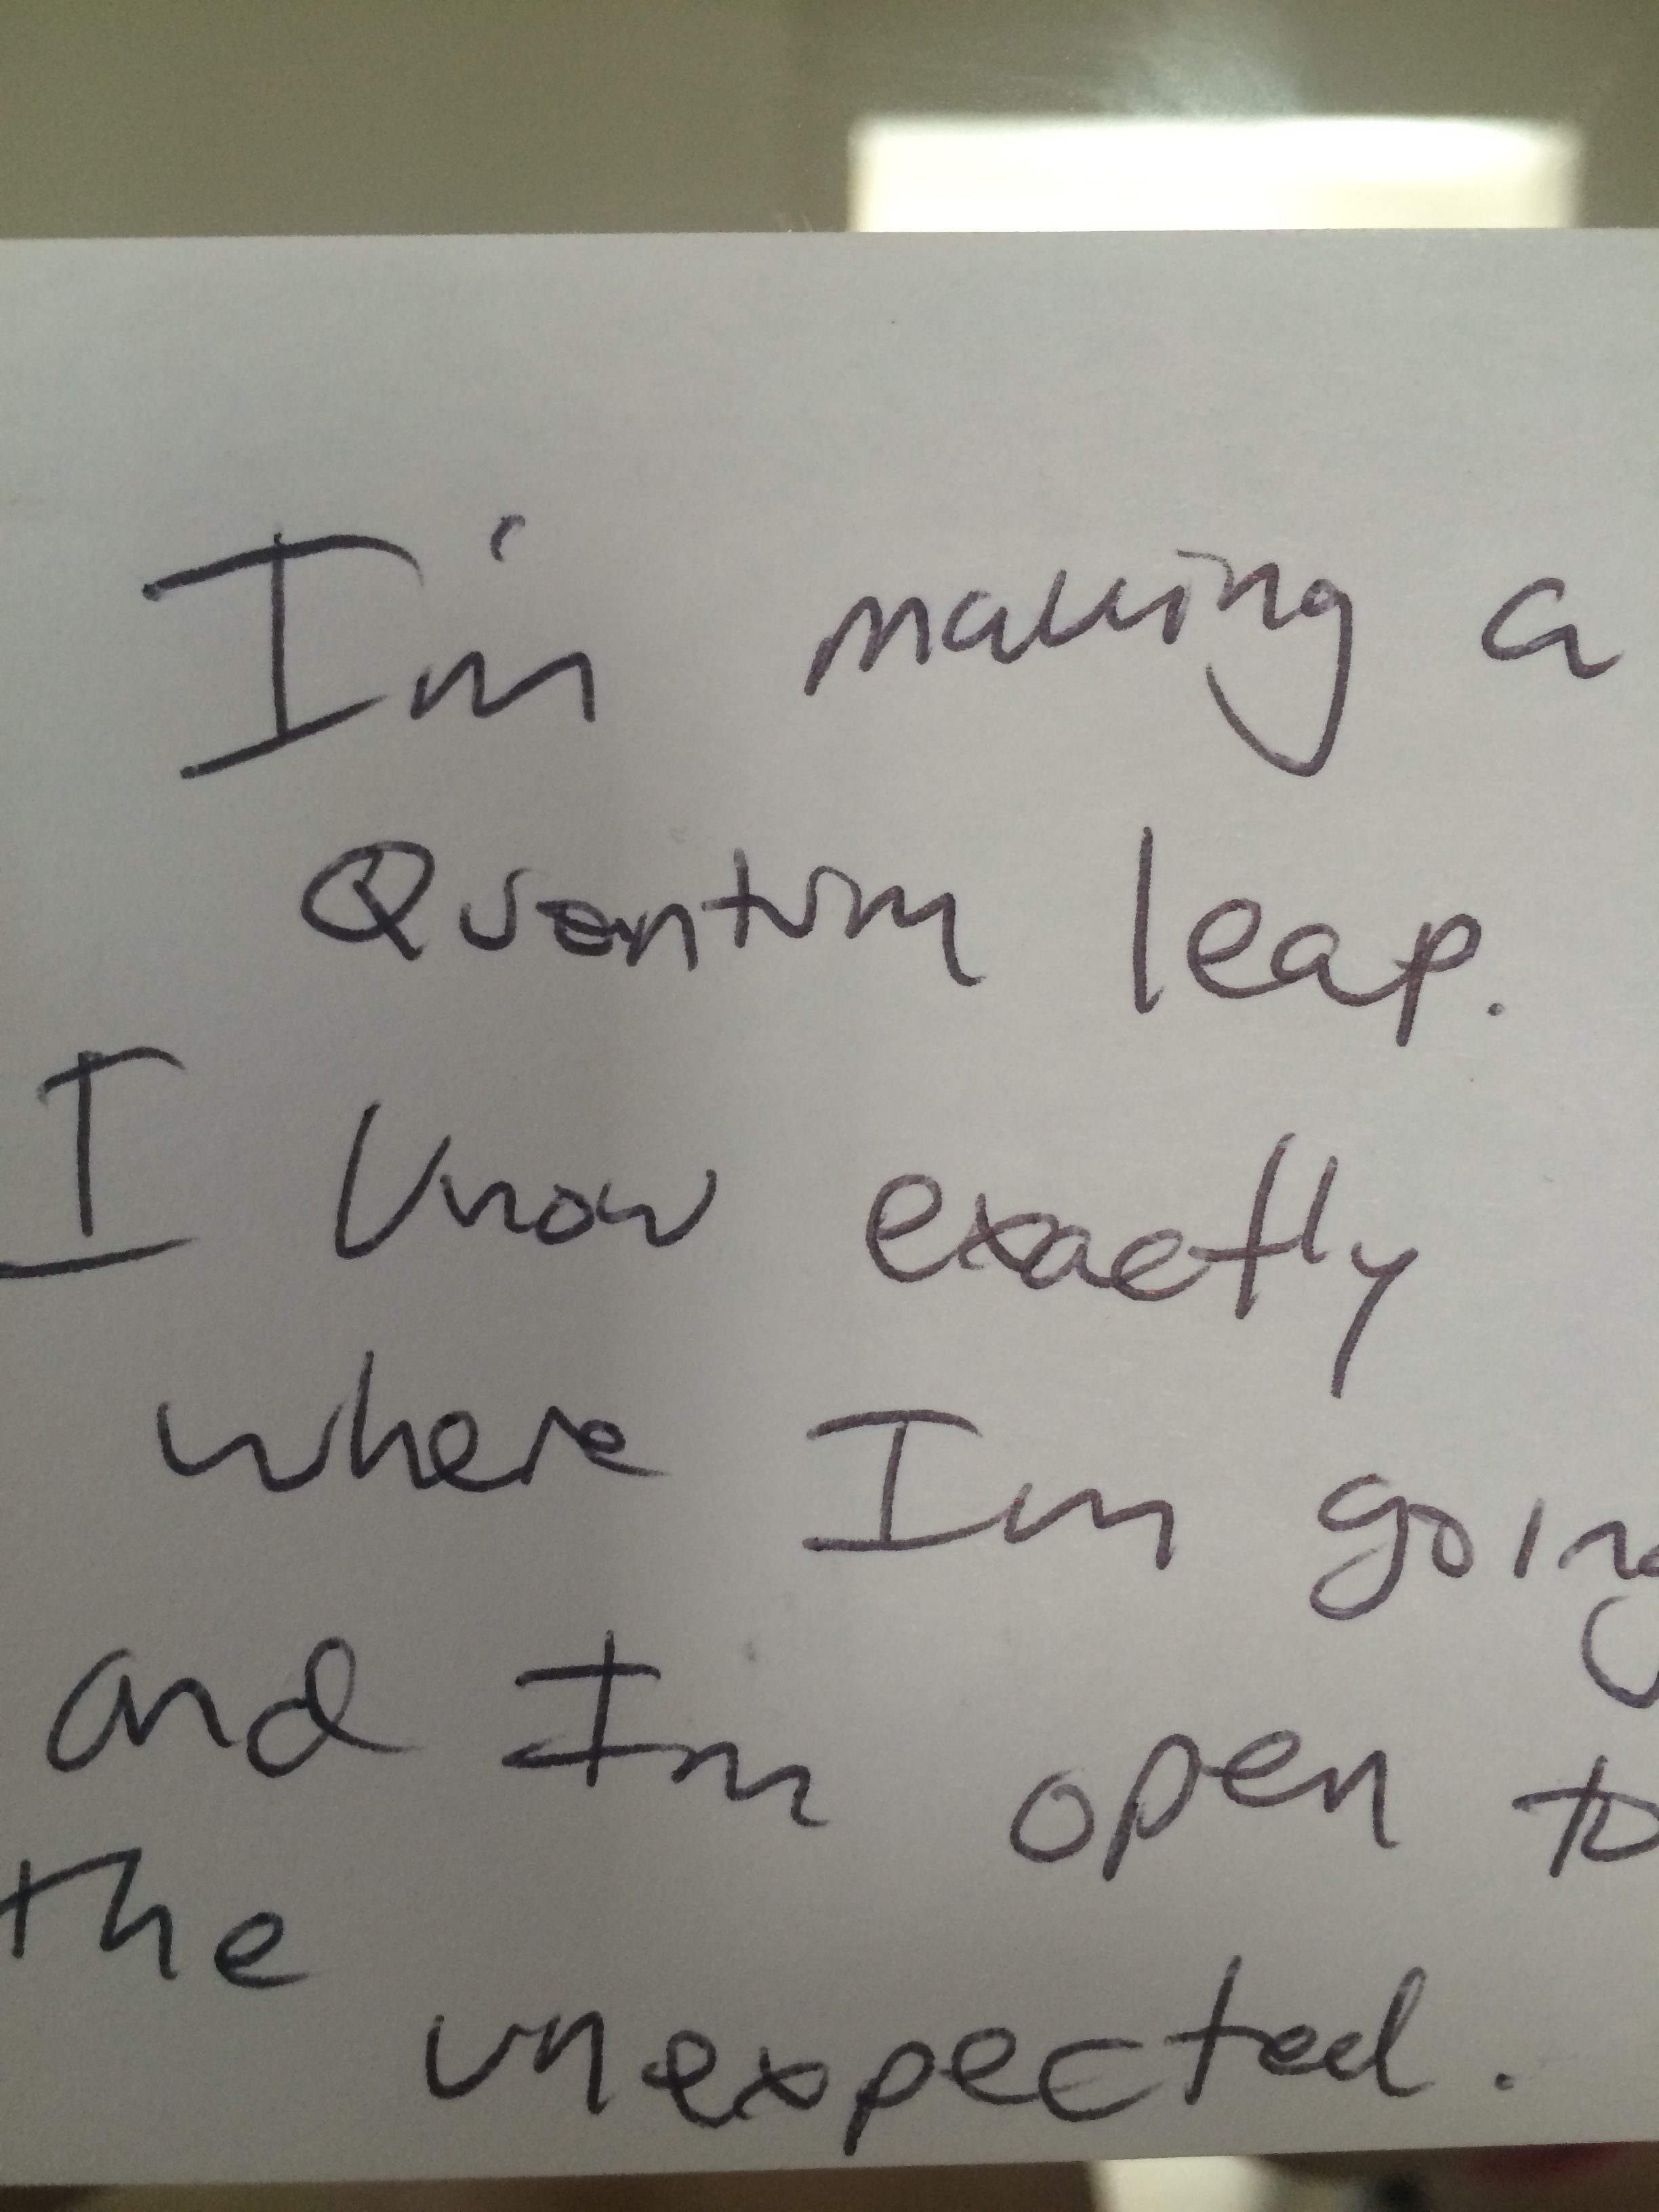 I'm making a
Quantum leap.
I know exactly
where Im going
and Im open to
the
unexpected.